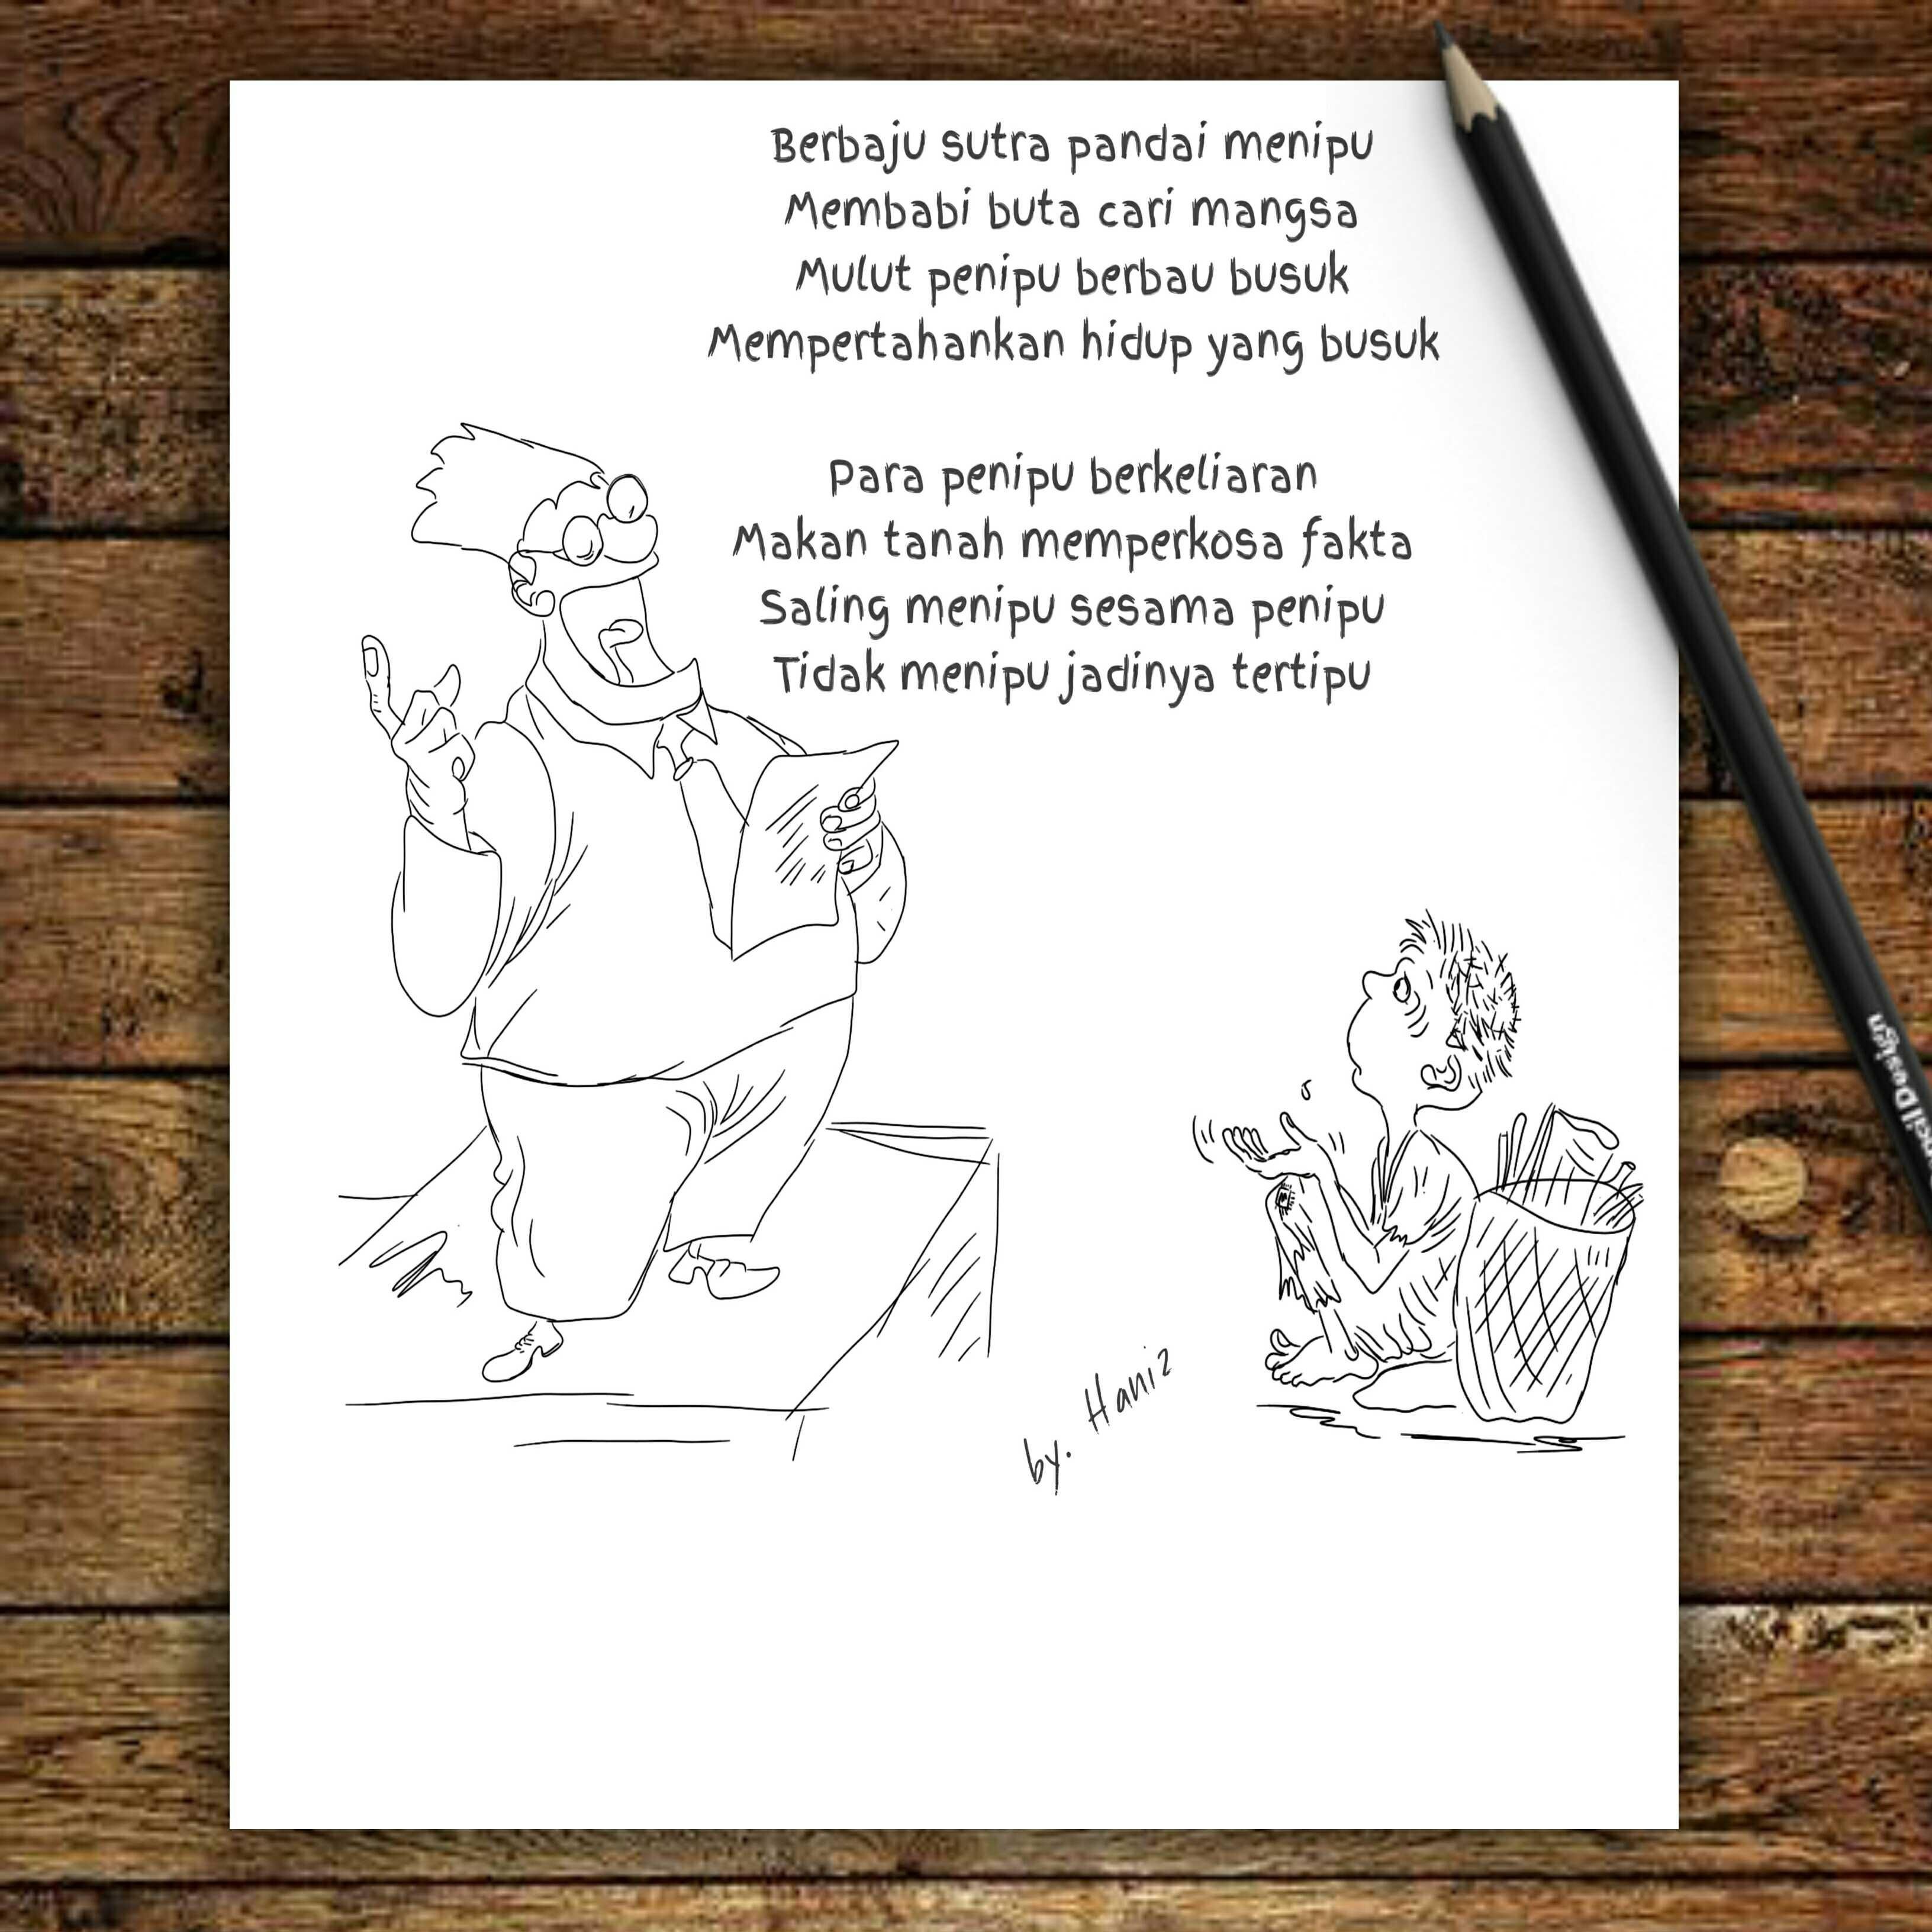 Berbaju sutra pandai menipu
Membabi buta cari mangsa
Mulut penipu berbau busuk
Mempertahankan hidup yang busuk
Para penipu berkeliaran
Makan tanah memperkosa fakta
Saling menipu sesama penipu
Tidak menipu jadinya tertipu
by. Haniz
Design